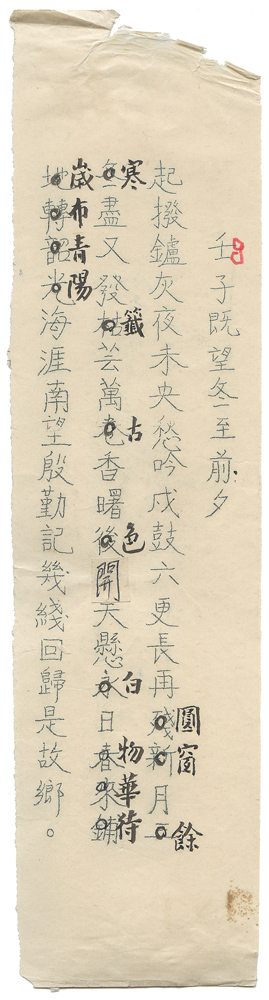 壬子既望冬至前夕
圓窗餘
起撥鑪灰夜未央愁吟戍鼓六更長再殘新月
寒籤古色白物華待
盡又發芸萬卷香曙後開天懸永日春來鋪
歲布青陽
地轉韶光海涯南望殷勤記幾綫回歸是故鄉。